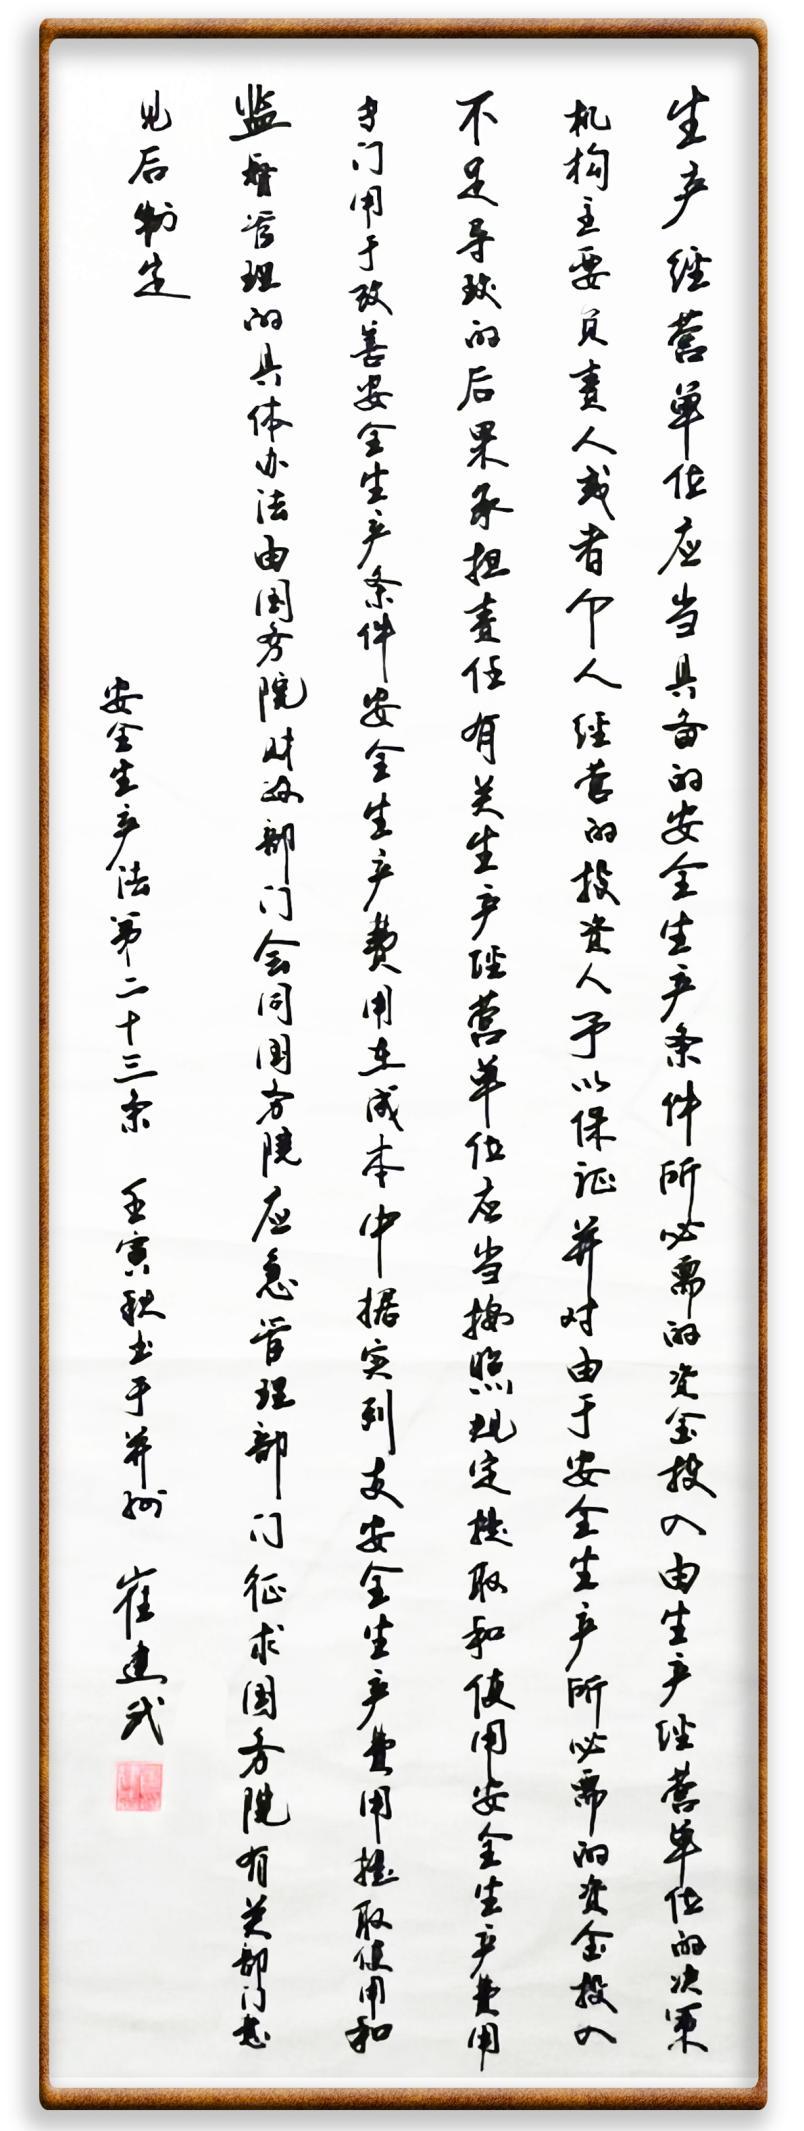 生产经营单位应当具备的安全生产条件所必需的资金投入由生产经营单位的决策
机构主要负责人或者个人经营的投资人予以保证并对由于安全生产所必需的资金投入
不足导致的后果承担责任有关生产经营单位应当按照规定提取和使用安全生产费用
专门用于改善安全生产条件安全生产费用在成本中据实列支安全生产费用提取使用和
监督管理的具体办法由国务院财政部门会同国务院应急管理部门征求国务院有关部门意
见后制定
安全生产法第二十三条 壬寅秋书于并州 崔建武